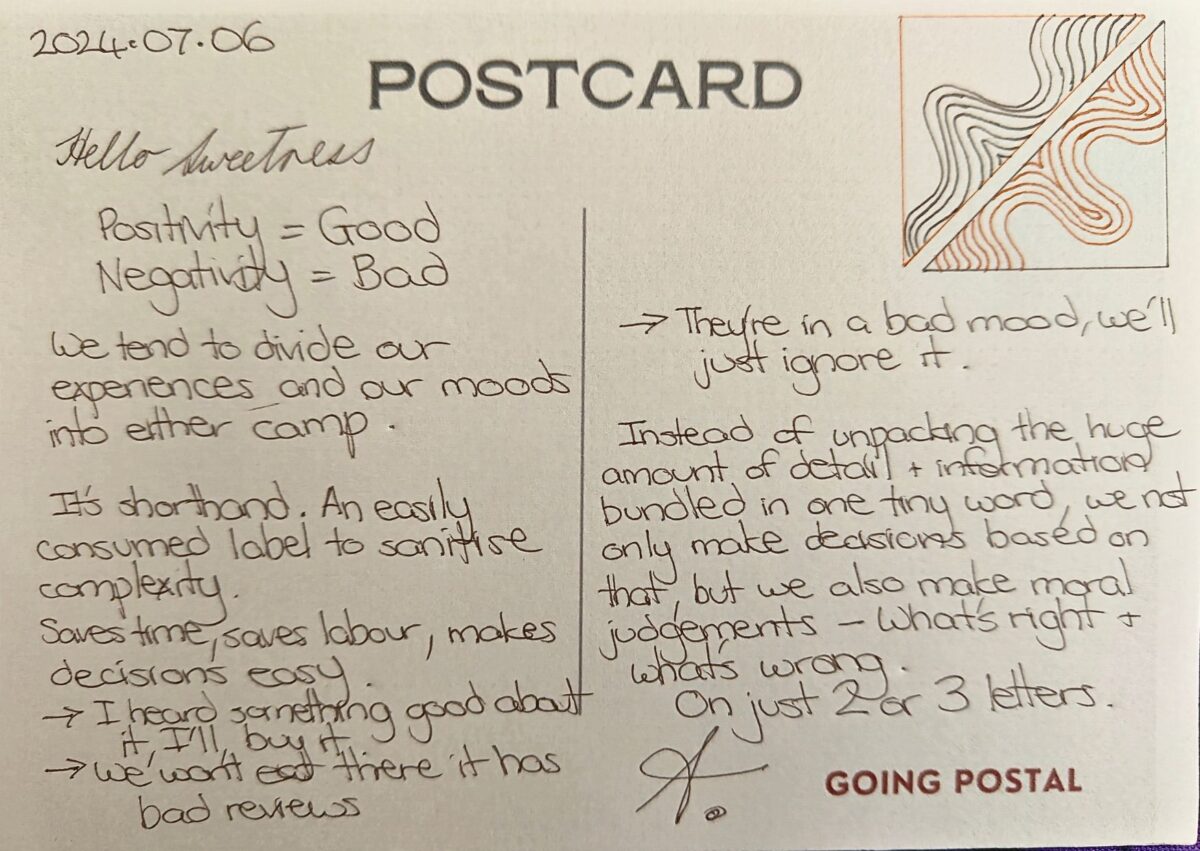 2024.07.06
POSTCARD
Hello Sweetness
Positivity = Good
Negativity = Bad
We tend to divide our
experiences and our moods
into either camp.
It's shorthand. An easily
consumed label to sanitise
complexity.
Saves time, saves labour, makes
decisions easy.
→ I heard something good about
it, I'll buy it
→ We won't eat there it has
bad reviews
→ They're in a bad mood, we'll
just ignore it.
Instead of unpacking the huge
amount of detail + information
bundled in one tiny word, we not
only make decisions based on
that, but we also make moral
judgements – what's right +
what's wrong.
On just 2 or 3 letters.
GOING POSTAL